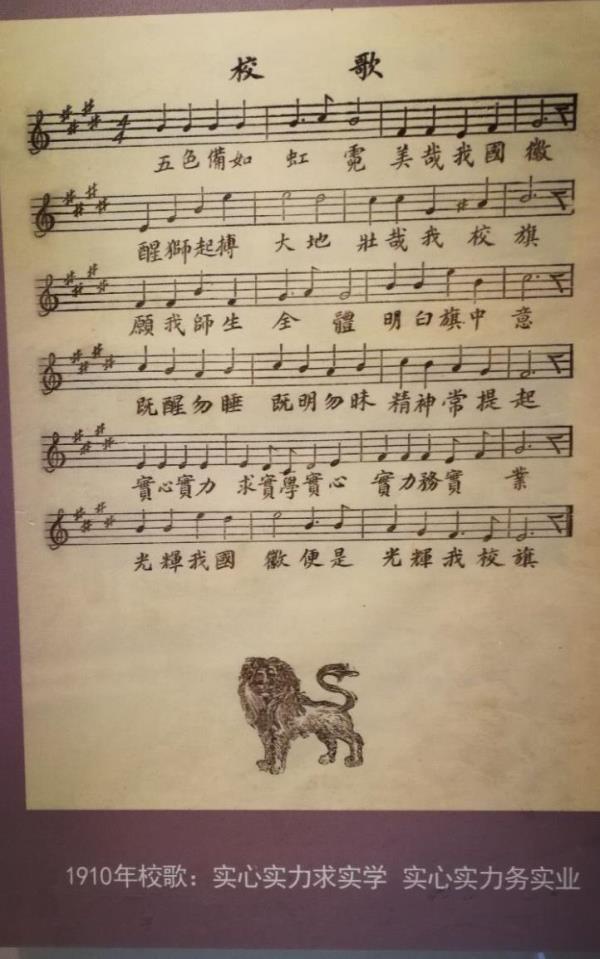 校歌
4
4
五色備如虹霓美哉我國徽
醒獅起摶大地壯哉我校旗
願我師生全體明白旗中意
既醒勿睡既明勿昧精神常提起
實心實力求實學實心實力務實業
光輝我國徽便是光輝我校旗
1910年校歌：实心实力求实学 实心实力务实业